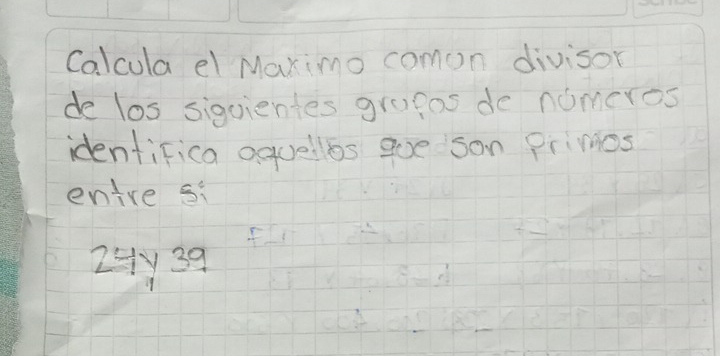 Calcula el Maximo comun divisor
de los siguientes grupos de números
identifica aquellos que son primos
entre si
24 y 39